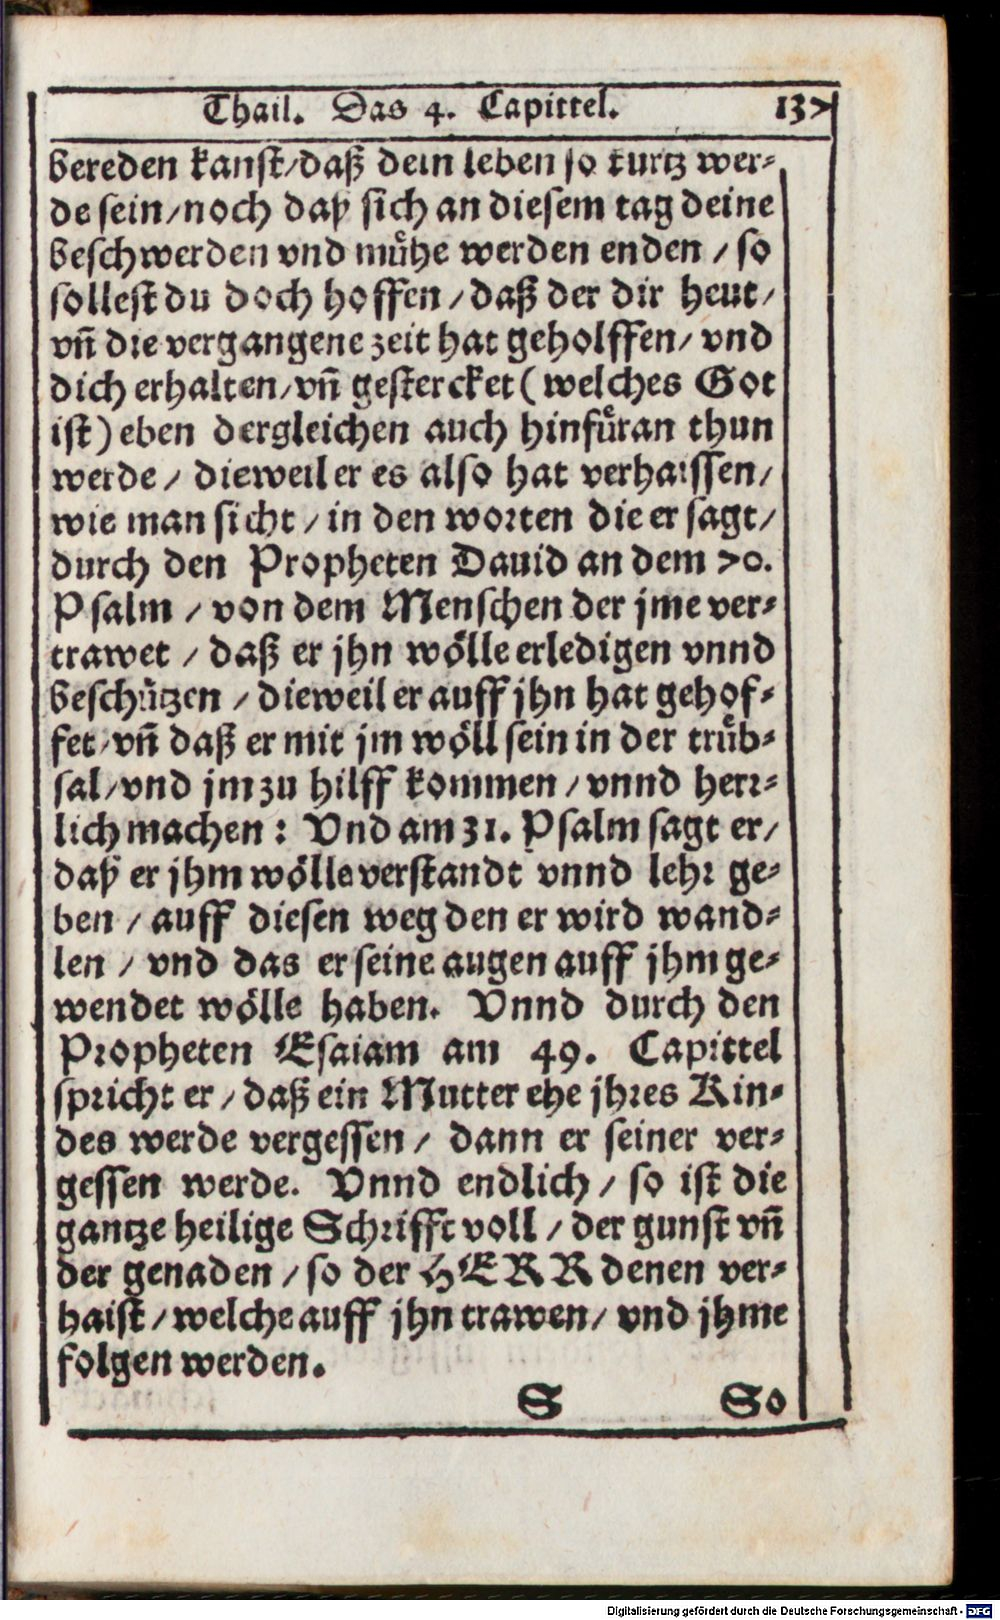 Thail. Das 4. Capittel. 137
bereden kanst/daß dein leben so kurtz wer-
de sein/noch daß sich an diesem tag deine
beschwerden vnd mühe werden enden / so
sollest du doch hoffen / daß der dir heut /
vñ die vergangene zeit hat geholffen / vnd
dich erhalten/vñ gestercket ( welches Got
ist ) eben dergleichen auch hinfüran thun
werde / dieweil er es also hat verhaissen /
wie man sicht / in den worten die er sagt /
durch den Propheten Dauid an dem 70.
Psalm / von dem Menschen der jme ver-
trawet / daß er jhn wölle erledigen vnnd
beschützen / dieweil er auff jhn hat gehof-
fet/vñ daß er mit jm wöll sein in der trüb-
sal/vnd jm zu hilff kommen / vnnd herr-
lich machen : Vnd am 31. Psalm sagt er /
daß er jhm wölle verstandt vnnd lehr ge-
ben / auff diesen weg den er wird wand-
len / vnd das er seine augen auff jhm ge-
wendet wölle haben. Vnnd durch den
Propheten Esaiam am 49. Capittel
spricht er / daß ein Mutter ehe jhres Kin-
des werde vergessen / dann er seiner ver-
gessen werde. Vnnd endlich / so ist die
gantze heilige Schrifft voll / der gunst vñ
der genaden / so der HERR denen ver-
haist / welche auff jhn trawen / vnd jhme
folgen werden.
S So
Digitalisierung gefördert durch die Deutsche Forschungsgemeinschaft - DFG